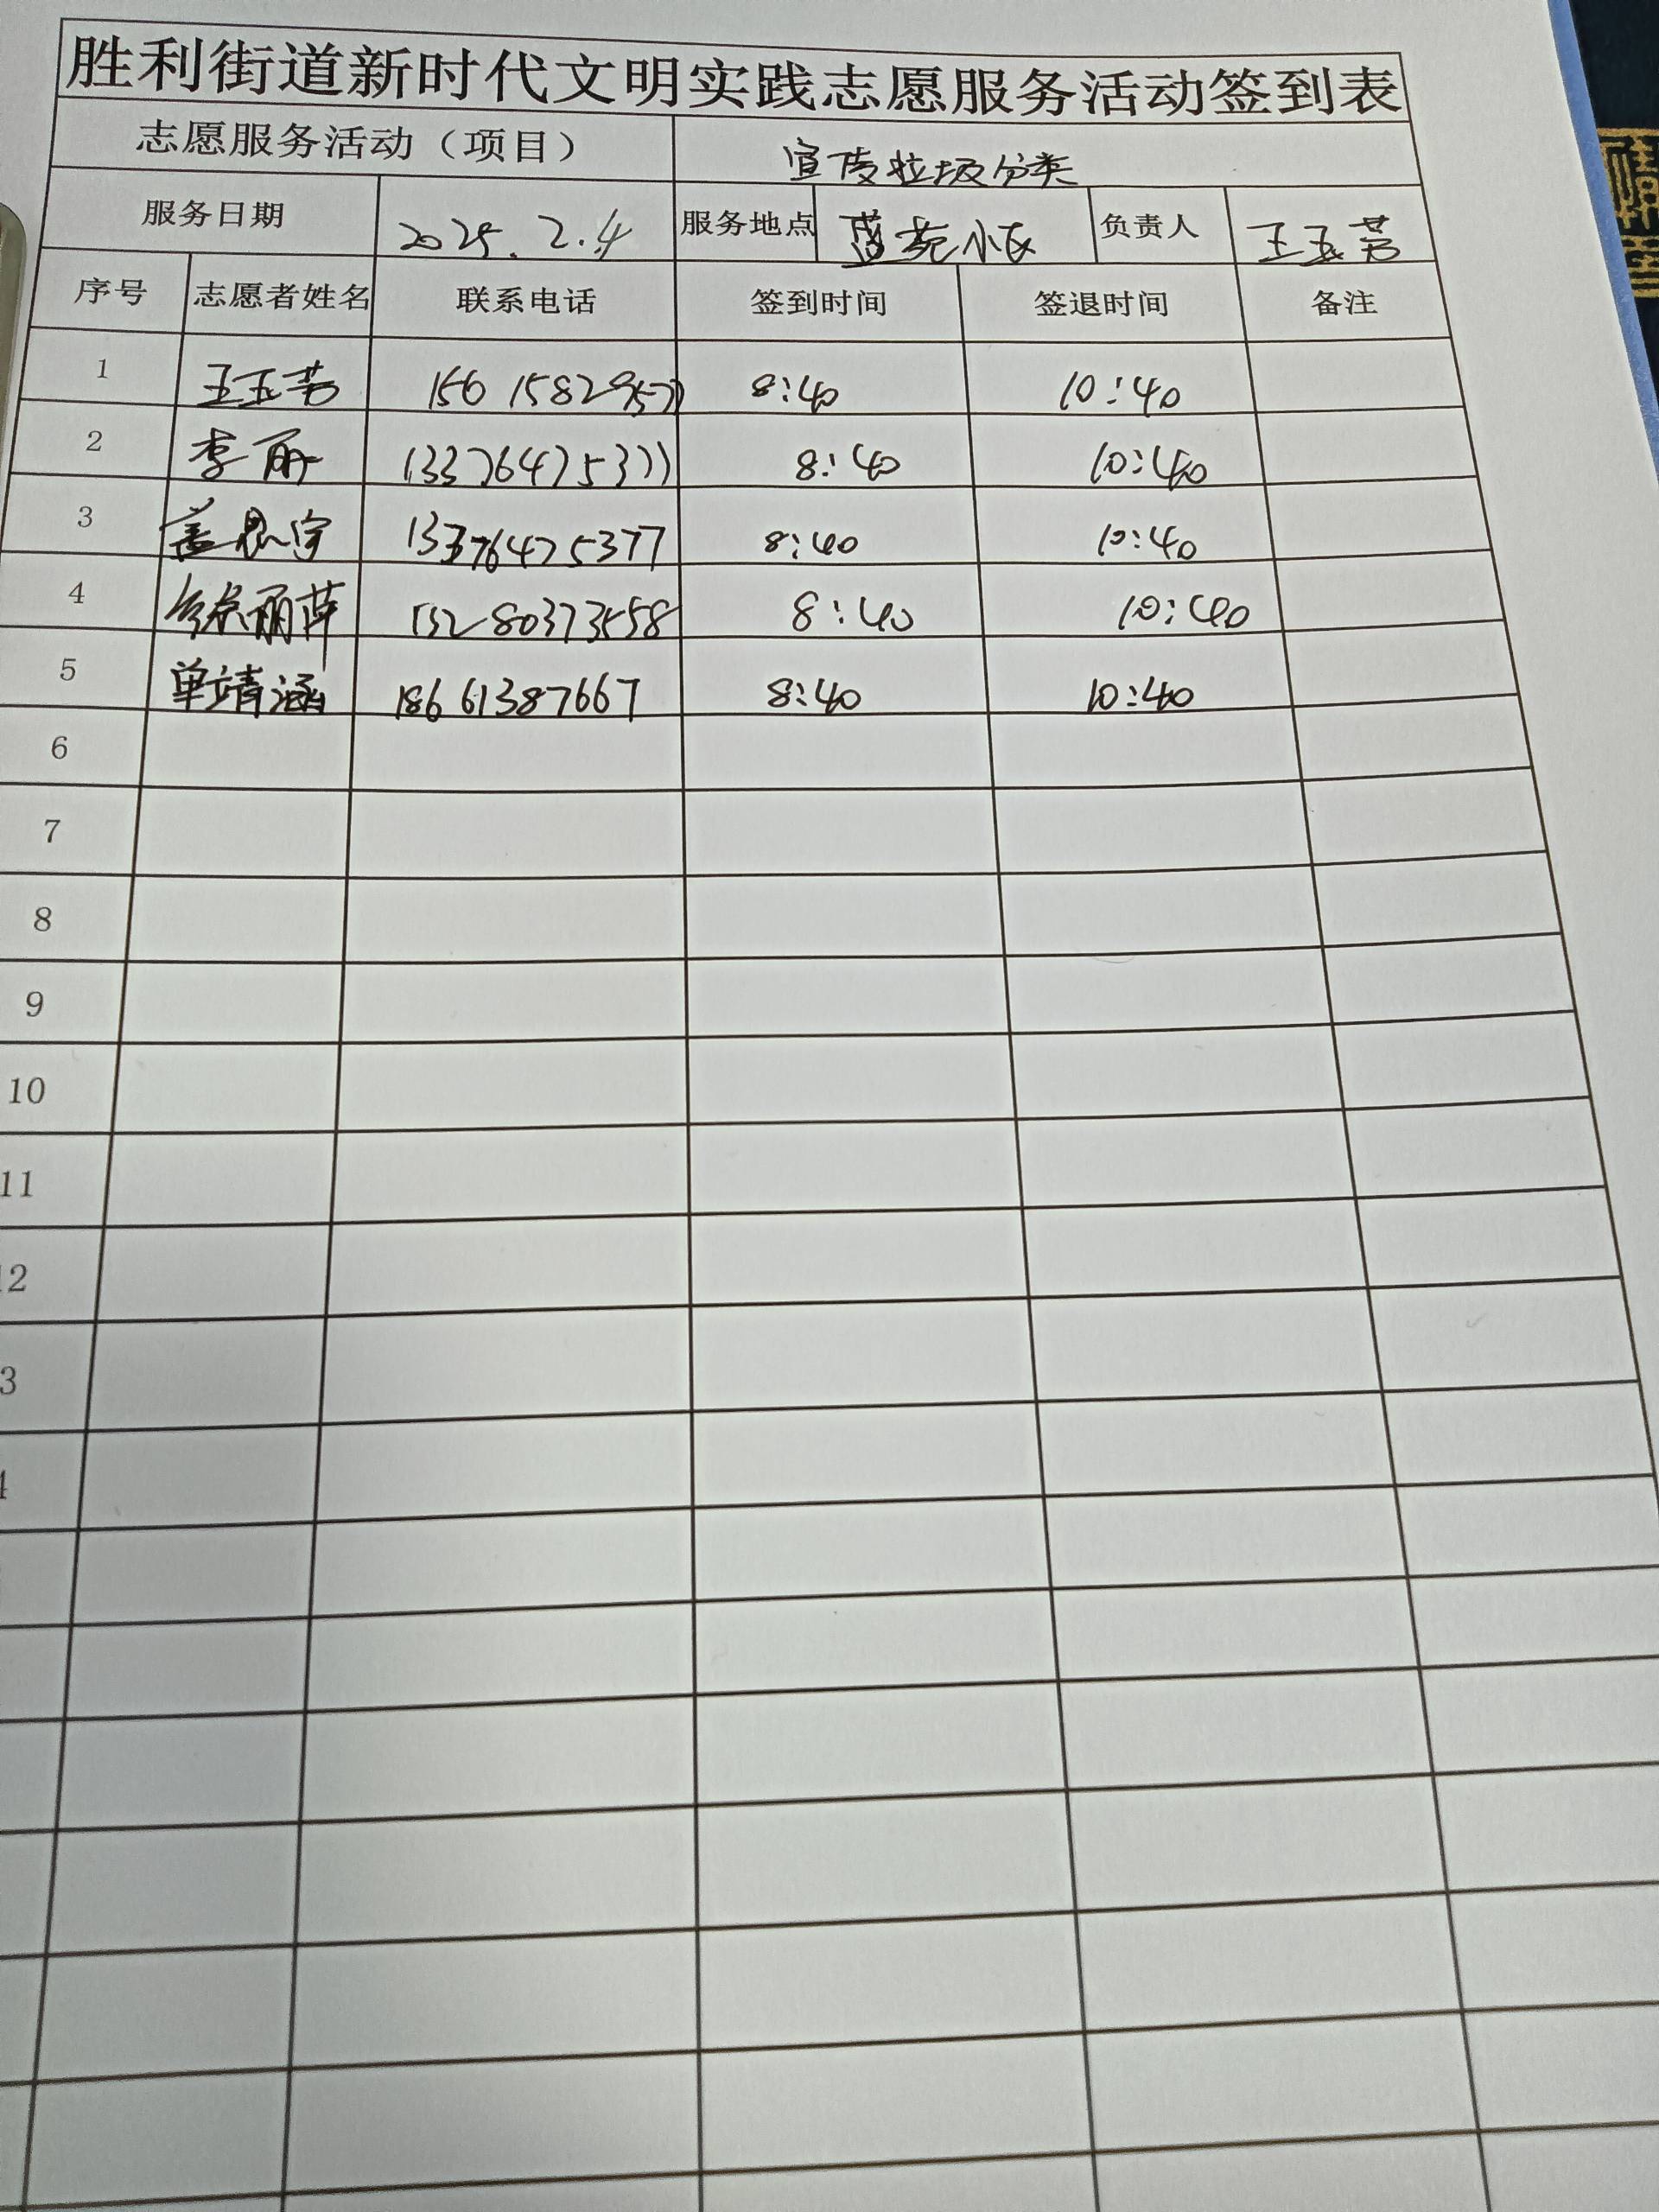 胜利街道新时代文明实践志愿服务活动签到表
志愿服务活动（项目） 宣传垃圾分类
服务日期 2025.2.4 服务地点 蓝苑小区 负责人 王玉芳
序号 志愿者姓名 联系电话 签到时间 签退时间 备注
1 王玉芳 8:40 10:40
2 李丽 13376475377 8:40 10:40
3 盖思宇 13376475377 8:40 10:40
4 徐丽萍 13280373558 8:40 10:40
5 单靖涵 18661387667 8:40 10:40
6
7
8
9
10
11
12
3
4